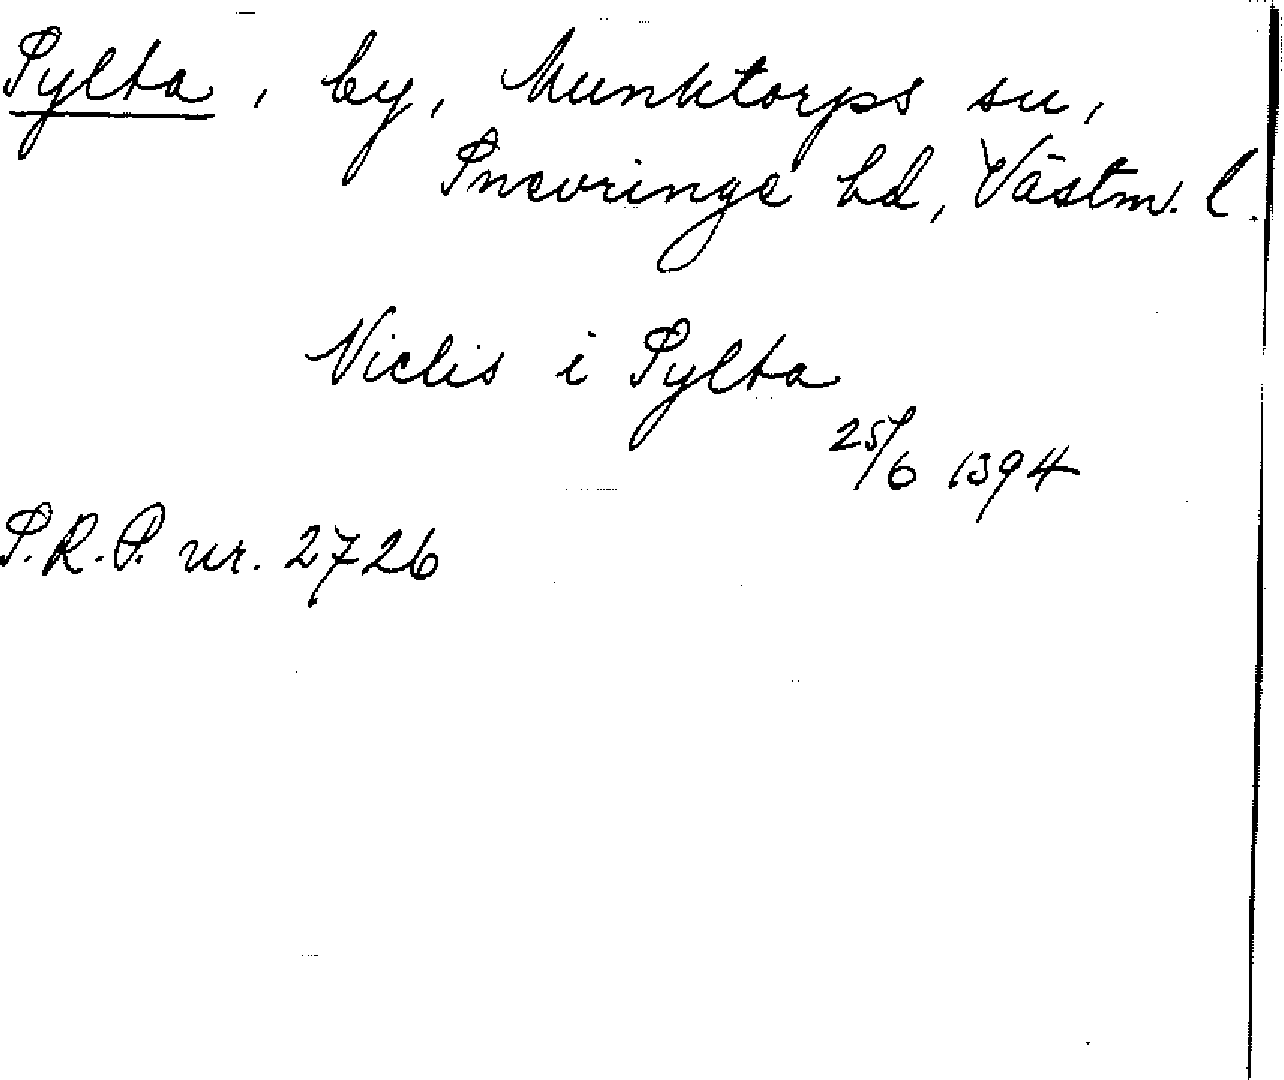 Sylta, by, Munktorps sn,
Snevringe hd, Västm. l.
Niclis i Sylta
25/6 1394
S.R.P. nr. 2726